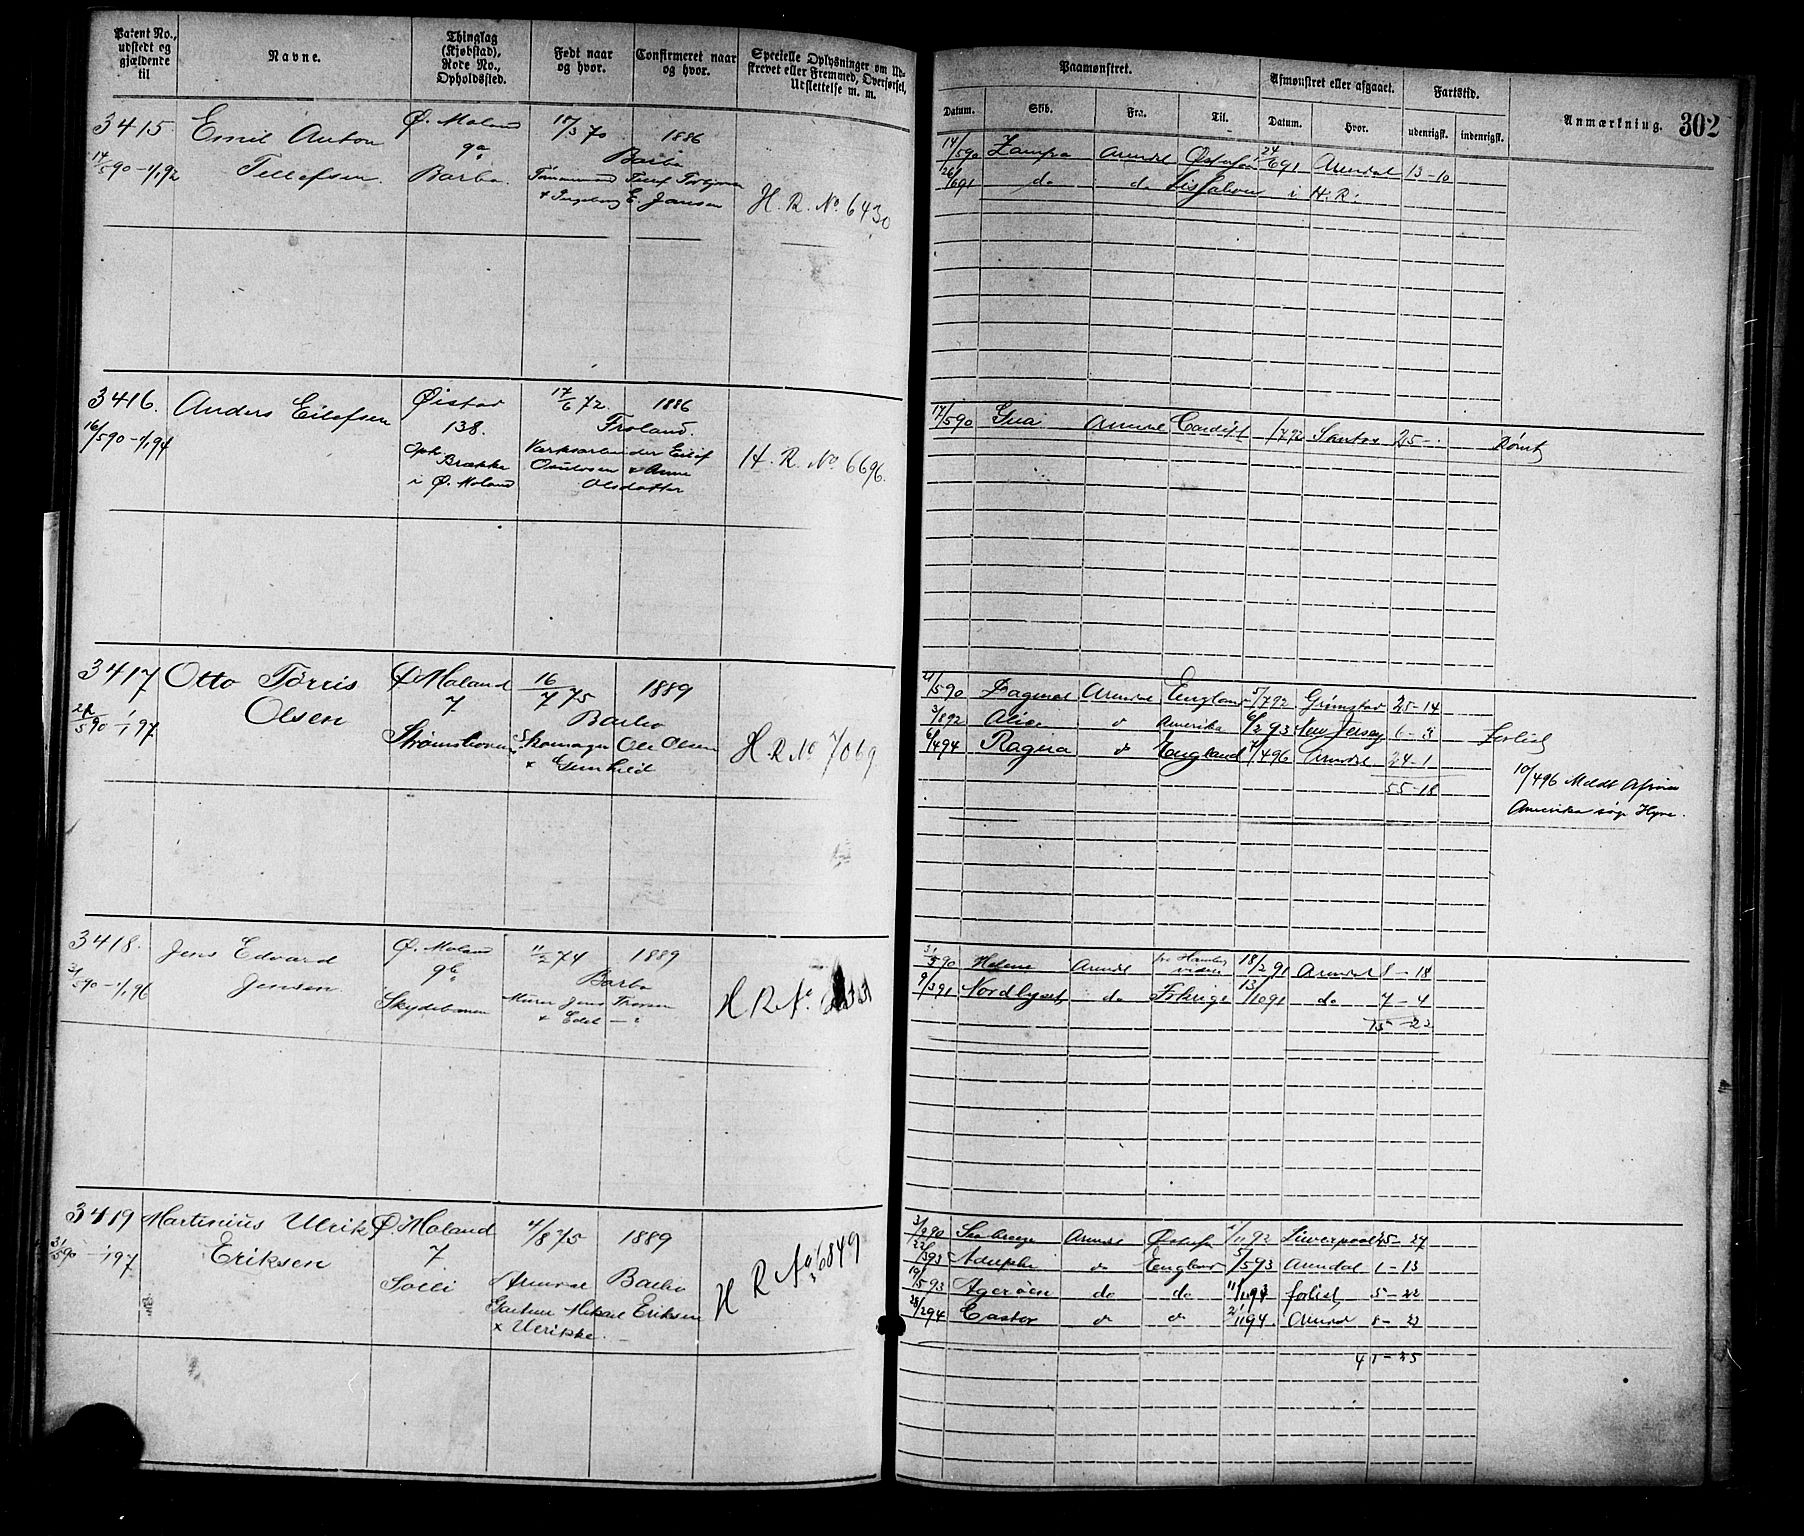 Patent No., udstedt og gjældende til
Navne.
Thinglag (Kjøbstad), Rode No., Opholdssted.
Født naar og hvor.
Confirmeret naar og hvor.
Specielle Oplysninger om Udskrevet eller Fremmed, Overførsel, Udslettelse m. m.
Paamønstret.
Datum.
Skib.
Fra.
Til.
Afmønstret eller afgaaet.
Datum.
Hvor.
Fartstid.
udenrigsk.
indenrigsk.
Anmærkning.
302
3415. Emil Anton Tellefsen.
14/5 90 - 1/1 92
Ø. Moland
9a
Barbo.
17/3 70
1886
Barbo
Tømmermand Tellef
+ Ingeborg E. Jansen
H. R. No 6430
14/5 90 Zampa Arendal 91 Arendal 13-10
26/6 91 do do i H. R.
3416. Anders Eilefsen
16/5 90 - 1/1 94
Øistad
138.
Oph. Brække
i Ø. Moland
17/6 72
1886
Froland.
Værksarbeider Eilef
+ Anne
Olsdatter
H. R. No 6696.
17/5 90 Arendal Cardiff 1/7 92 Santos 25-
Rømt
3417 Otto Tørris Olsen
21/5 90 - 1/1 97
Ø Moland
7
16/7 75
1889
Barbo
Skomager Ole Olsen
+ Gunhild
H R No 7069
21/5 90 Dagmar Arendal England 5/7 92 Grimstad 25-14
3/8 92 Alice do Amerika 6/2 93 New Jersey 6-3 forlist
6/4 94 Ragna do England 7/4 96 Arendal 24-1
55-18
10/4 96 Meldt Afreise
Amerika søge Hyre.
3418. Jens Edvard Jensen
31/5 90 - 1/1 96
Ø. Moland
9b
Skydebanen
11/2 74
1889
Barbo
Murer Jens
+ Edel
H R No
31/5 90 Helene Arendal 18/2 91 Arendal 8-18
9/3 91 Nordlyset do 13/10 91 do 7-4
15-22
3419 Martinius Ulrik Eriksen
31/5 90 - 1/1 97
Ø. Moland
7
Solli
4/8 75
1889
Arendal Barbo
Gartner Mikael Eriksen
+ Ulrikke.
H R No 6849
Arendal 92 Liverpool 25-27
England 93 Arendal 1-13
19/5 93 Agerøen do do 94 forlist 5-22
28/2 94 Castor do do 94 Arendal 8-23
41-25